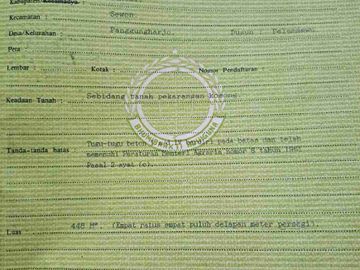 Kabupaten/Kotamadya :
Kecamatan : Sewon.
Desa/Kelurahan : Panggungharjo. Dusun : Pelemsewu.
Peta
Lembar : Kotak : Nomor Pendaftaran
Keadaan Tanah : Sebidang tanah pekarangan kosong
Tanda-tanda batas : Tugu-tugu beton berdiri pada batas dan telah
memenuhi Peraturan Menteri Agraria nomor 8 tahun 1961
Pasal 2 ayat (c).
Luas : 448 M². (Empat ratus empat puluh delapan meter persegi).